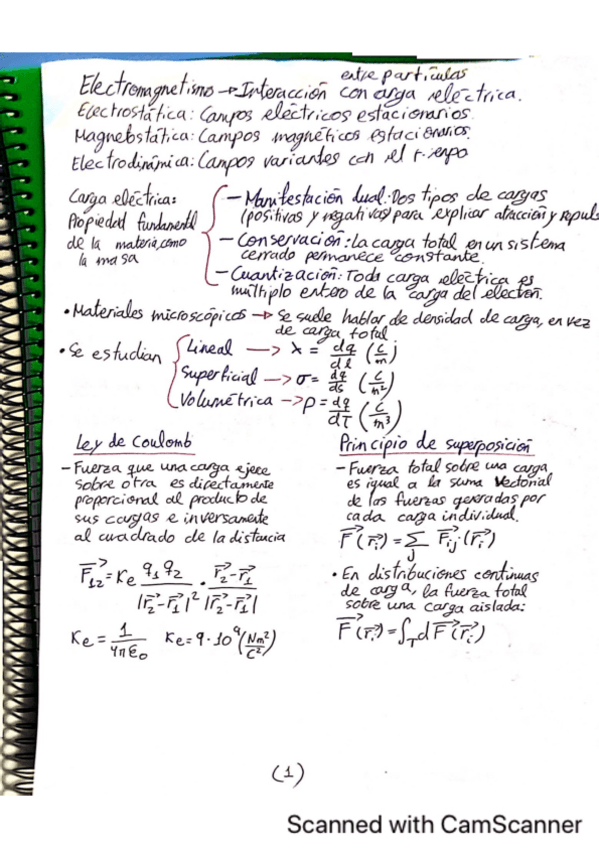 entre partículas
Electromagnetismo → Interacción con carga eléctrica.
Electrostática: Campos eléctricos estacionarios.
Magnetostática: Campos magnéticos estacionarios.
Electrodinámica: Campos variantes con el tiempo
Carga eléctrica:
Propiedad fundamental
de la materia, como
la masa
- Manifestación dual: Dos tipos de cargas
(positivas y negativas) para explicar atracción y repuls
- Conservación: La carga total en un sistema
cerrado permanece constante.
- Cuantización: Toda carga eléctrica es
múltiplo entero de la carga del electrón.
• Materiales microscópicos → Se suele hablar de densidad de carga, en vez
de carga total
• Se estudian
Lineal → λ = dq/dl (C/m)
Superficial → σ = dq/ds (C/m²)
Volumétrica → ρ = dq/dτ (C/m³)
Ley de Coulomb
- Fuerza que una carga ejece
sobre otra es directamente
proporcional al producto de
sus cargas e inversamente
al cuadrado de la distancia
F⃗12 = Ke q1 q2 / |r⃗2 - r⃗1|² · r⃗2 - r⃗1 / |r⃗2 - r⃗1|
Ke = 1/4πε0 Ke = 9·10⁹ (Nm²/C²)
Principio de superposición
- Fuerza total sobre una carga
es igual a la suma vectorial
de las fuerzas generadas por
cada carga individual.
F⃗(r⃗i) = Σj F⃗ij(r⃗i)
• En distribuciones continuas
de carga, la fuerza total
sobre una carga aislada:
F⃗(r⃗i) = ∫τ dF⃗(r⃗i)
(1)
Scanned with CamScanner